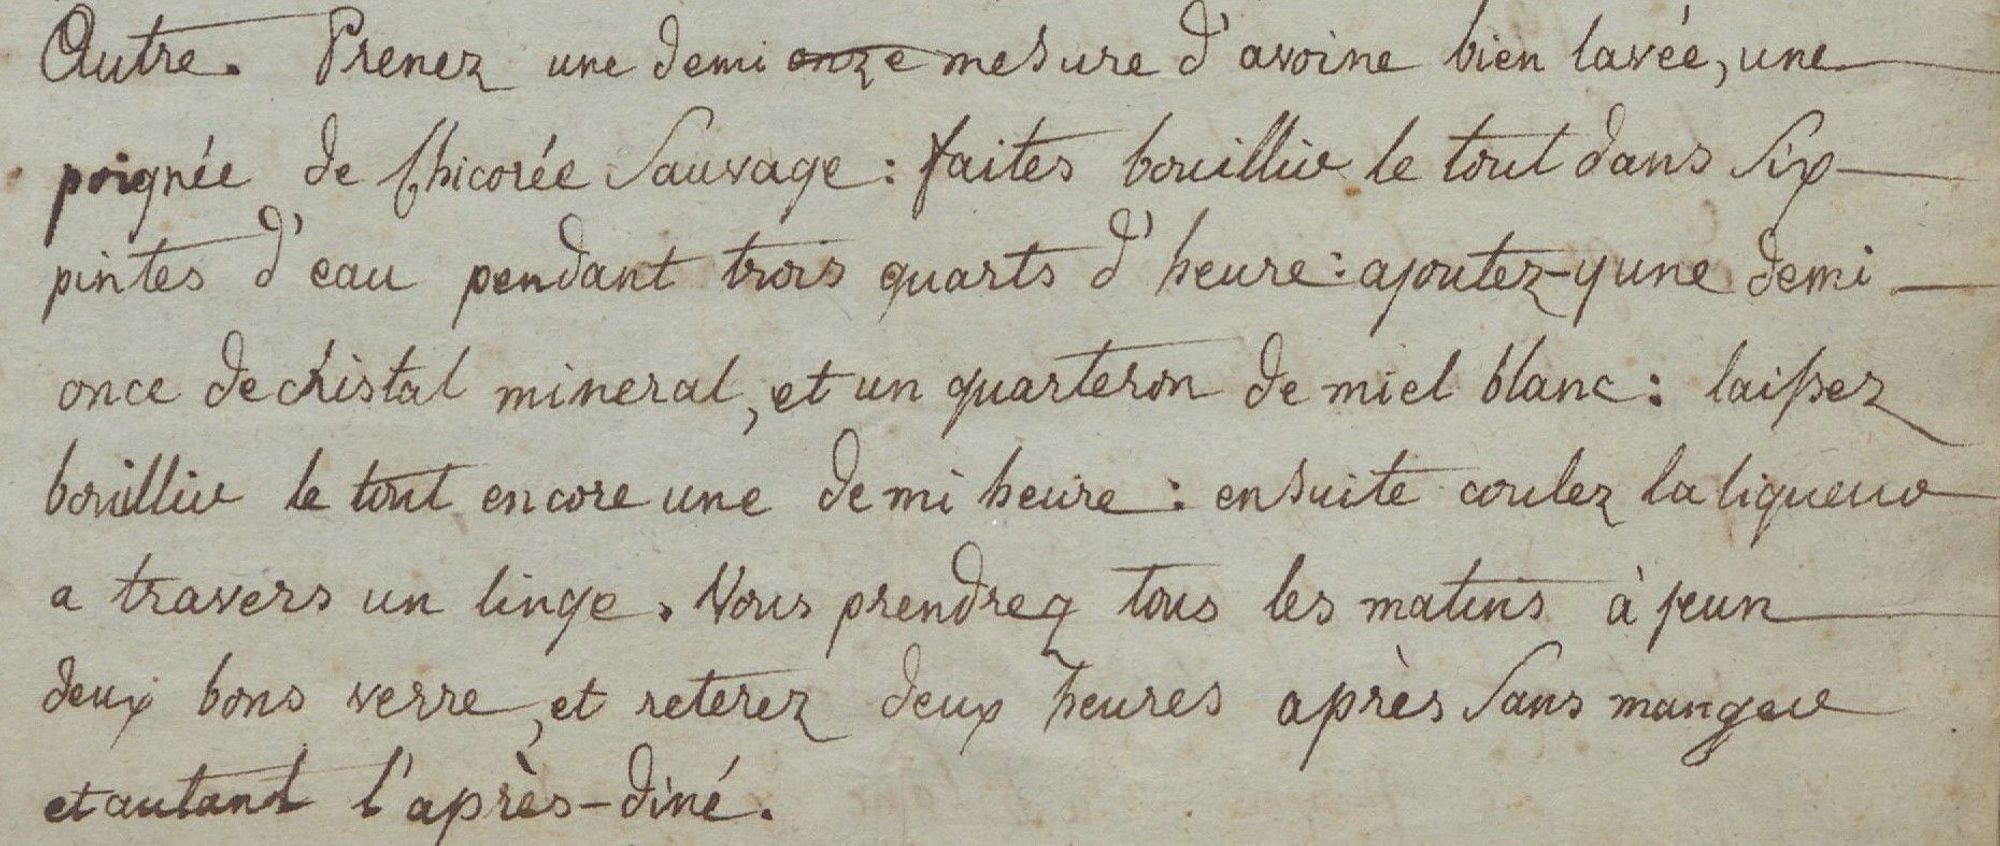 Autre. Prenez une demi onze mesure d'avoine bien lavée, une
poignée de Chicorée Sauvage : faites bouillir le tout dans Six
pintes d'eau pendant trois quarts d'heure : ajoutez-y une demi
once de christal mineral, et un quarteron de miel blanc : laissez
bouillir le tout encore une demi heure : ensuite coulez la liqueur
a travers un linge. Vous prendrez tous les matins à jeun
deux bons verre, et reterez deux heures après Sans manger
et autant l'après-diné.